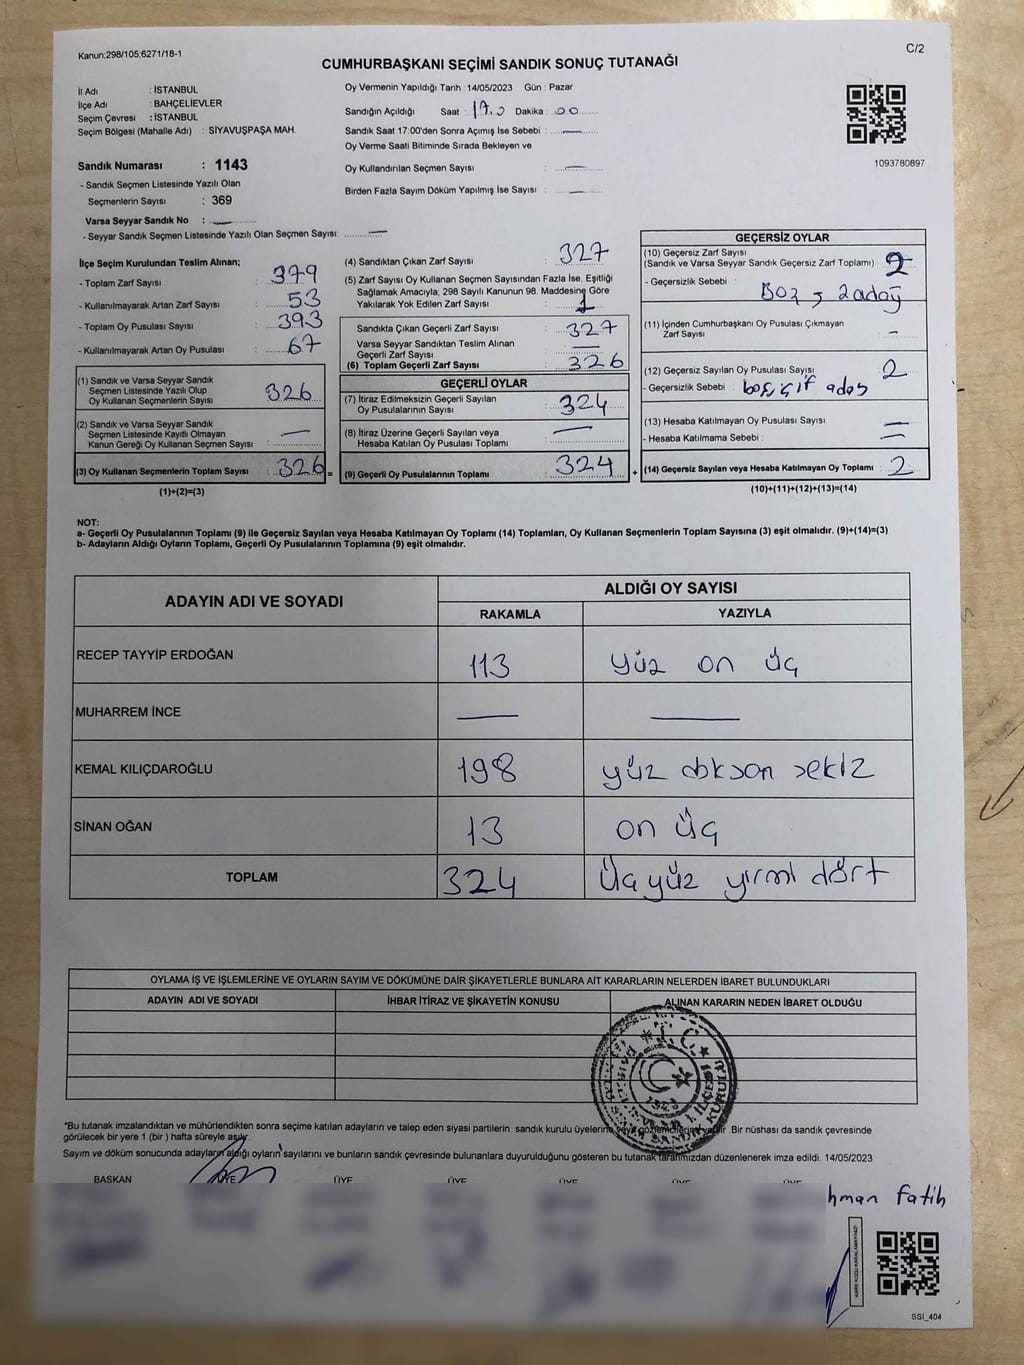 Kanun:298/105;6271/18-1
C/2
CUMHURBAŞKANI SEÇİMİ SANDIK SONUÇ TUTANAĞI
İl Adı : İSTANBUL
İlçe Adı : BAHÇELİEVLER
Seçim Çevresi : İSTANBUL
Seçim Bölgesi (Mahalle Adı) : SİYAVUŞPAŞA MAH.
Sandık Numarası : 1143
- Sandık Seçmen Listesinde Yazılı Olan
Seçmenlerin Sayısı : 369
Varsa Seyyar Sandık No : —
- Seyyar Sandık Seçmen Listesinde Yazılı Olan Seçmen Sayısı: —
Oy Vermenin Yapıldığı Tarih : 14/05/2023 Gün : Pazar
Sandığın Açıldığı Saat : 17.0 Dakika : 00
Sandık Saat 17:00'den Sonra Açımış İse Sebebi : —
Oy Verme Saati Bitiminde Sırada Bekleyen ve
Oy Kullandırılan Seçmen Sayısı : —
Birden Fazla Sayım Döküm Yapılmış İse Sayısı : —
1093780897
İlçe Seçim Kurulundan Teslim Alınan;
- Toplam Zarf Sayısı : 379
- Kullanılmayarak Artan Zarf Sayısı : 53
- Toplam Oy Pusulası Sayısı : 393
- Kullanılmayarak Artan Oy Pusulası : 67
(1) Sandık ve Varsa Seyyar Sandık
Seçmen Listesinde Yazılı Olup
Oy Kullanan Seçmenlerin Sayısı : 326
(2) Sandık ve Varsa Seyyar Sandık
Seçmen Listesinde Kayıtlı Olmayan
Kanun Gereği Oy Kullanan Seçmen Sayısı : —
(3) Oy Kullanan Seçmenlerin Toplam Sayısı : 326 =
(1)+(2)=(3)
(4) Sandıktan Çıkan Zarf Sayısı : 327
(5) Zarf Sayısı Oy Kullanan Seçmen Sayısından Fazla İse, Eşitliği
Sağlamak Amacıyla, 298 Sayılı Kanunun 98. Maddesine Göre
Yakılarak Yok Edilen Zarf Sayısı : 1
Sandıkta Çıkan Geçerli Zarf Sayısı : 327
Varsa Seyyar Sandıktan Teslim Alınan
Geçerli Zarf Sayısı : —
(6) Toplam Geçerli Zarf Sayısı : 326
GEÇERLİ OYLAR
(7) İtiraz Edilmeksizin Geçerli Sayılan
Oy Pusulalarının Sayısı : 324
(8) İtiraz Üzerine Geçerli Sayılan veya
Hesaba Katılan Oy Pusulası Toplamı : —
(9) Geçerli Oy Pusulalarının Toplamı : 324 +
GEÇERSİZ OYLAR
(10) Geçersiz Zarf Sayısı
(Sandık ve Varsa Seyyar Sandık Geçersiz Zarf Toplamı) : 2
- Geçersizlik Sebebi : Boş 2 aday
(11) İçinden Cumhurbaşkanı Oy Pusulası Çıkmayan
Zarf Sayısı : —
(12) Geçersiz Sayılan Oy Pusulası Sayısı : 2
- Geçersizlik Sebebi : boş, çift aday
(13) Hesaba Katılmayan Oy Pusulası Sayısı : —
- Hesaba Katılmama Sebebi : —
(14) Geçersiz Sayılan veya Hesaba Katılmayan Oy Toplamı : 2
(10)+(11)+(12)+(13)=(14)
NOT:
a- Geçerli Oy Pusulalarının Toplamı (9) ile Geçersiz Sayılan veya Hesaba Katılmayan Oy Toplamı (14) Toplamları, Oy Kullanan Seçmenlerin Toplam Sayısına (3) eşit olmalıdır. (9)+(14)=(3)
b- Adayların Aldığı Oyların Toplamı, Geçerli Oy Pusulalarının Toplamına (9) eşit olmalıdır.
ADAYIN ADI VE SOYADI
ALDIĞI OY SAYISI
RAKAMLA YAZIYLA
RECEP TAYYİP ERDOĞAN 113 yüz on üç
MUHARREM İNCE — —
KEMAL KILIÇDAROĞLU 198 yüz doksan sekiz
SİNAN OĞAN 13 on üç
TOPLAM 324 Üçyüz yirmi dört
OYLAMA İŞ VE İŞLEMLERİNE VE OYLARIN SAYIM VE DÖKÜMÜNE DAİR ŞİKAYETLERLE BUNLARA AİT KARARLARIN NELERDEN İBARET BULUNDUKLARI
ADAYIN ADI VE SOYADI İHBAR İTİRAZ VE ŞİKAYETİN KONUSU ALINAN KARARIN NEDEN İBARET OLDUĞU
T.C.
1923
SANDIK KURULU
"Bu tutanak imzalandıktan ve mühürlendikten sonra seçime katılan adayların ve talep eden siyasi partilerin sandık kurulu üyelerine veya gözlemcilerine verilir. Bir nüshası da sandık çevresinde
görülecek bir yere 1 (bir ) hafta süreyle asılır.
Sayım ve döküm sonucunda adayların aldığı oyların sayılarını ve bunların sandık çevresinde bulunanlara duyurulduğunu gösteren bu tutanak tarafımızdan düzenlenerek imza edildi. 14/05/2023
BAŞKAN ÜYE ÜYE ÜYE ÜYE ÜYE ÜYE
hman fatih
KARE KODU KARALAMAYINIZ!
SSI_404